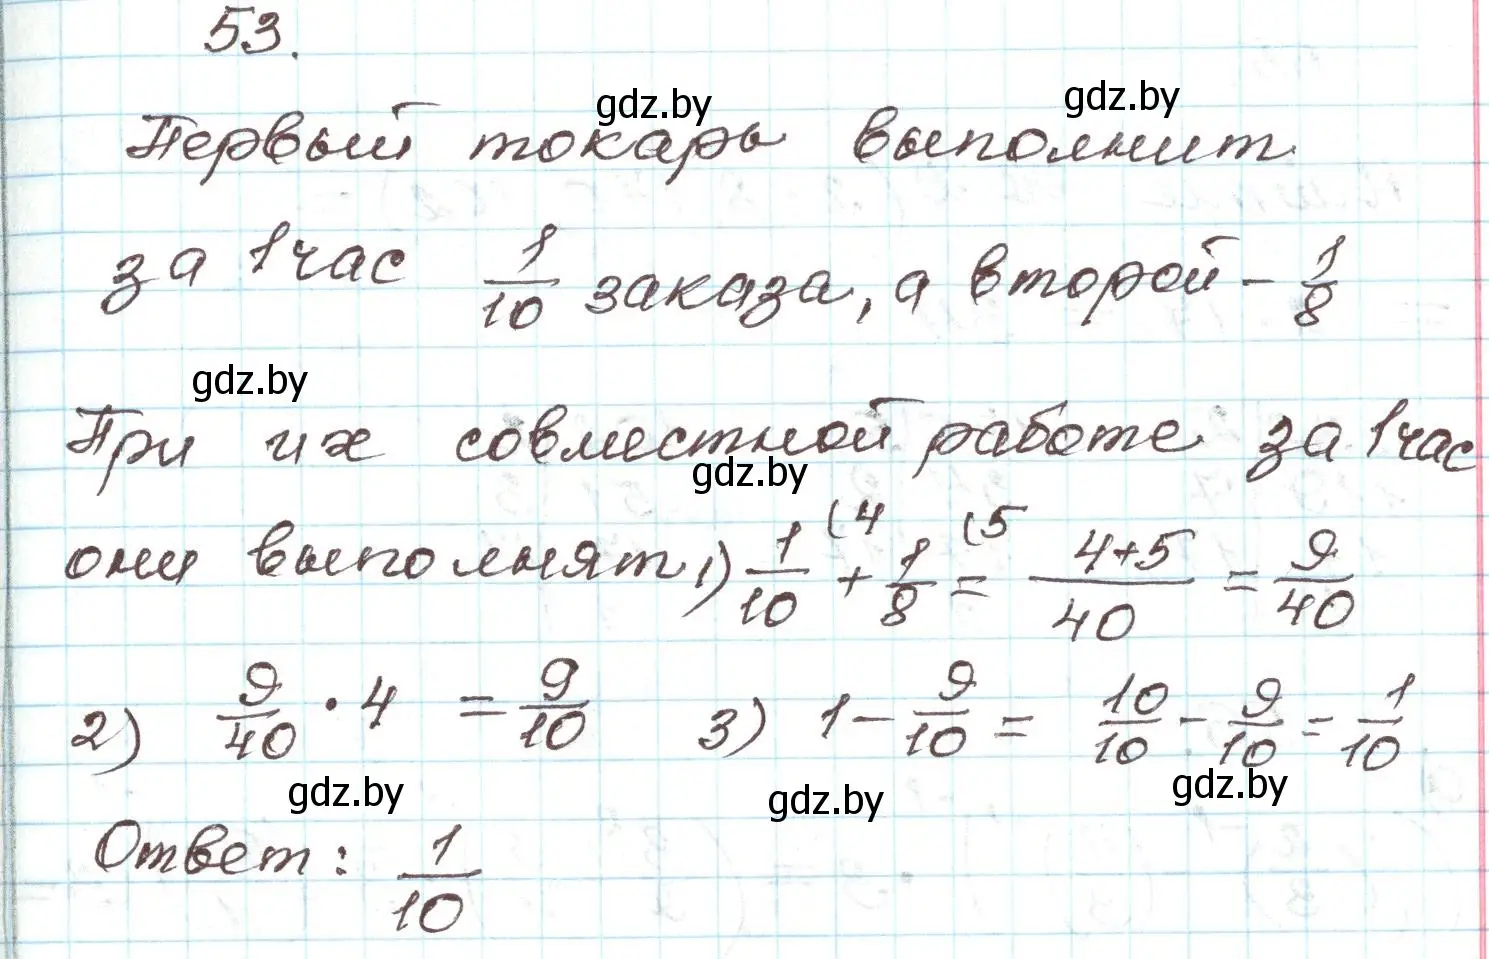 53.
gdz.by gdz.by
Первый токарь выполнит
за 1 час 1/10 заказа, а второй - 1/8
gdz.by
При их совместной работе за 1 час
gdz.by
они выполнят 1) 1/10 (4 + 1/8 (5 = 4+5/40 = 9/40
2) 9/40 · 4 = 9/10 3) 1 - 9/10 = 10/10 - 9/10 = 1/10
gdz.by gdz.by gdz.by
Ответ: 1/10